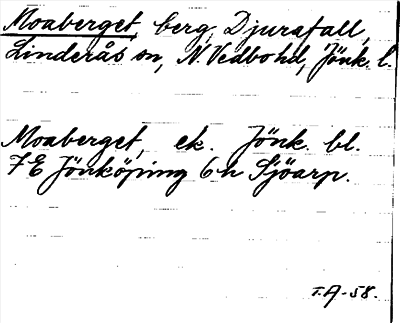 Moaberget, berg, Djurafall,
Linderås sn, N. Vedbohd, Jönk. l.
Moaberget, ek. Jönk. bl.
7E Jönköping 6h Sjöarp.
T.A-58.